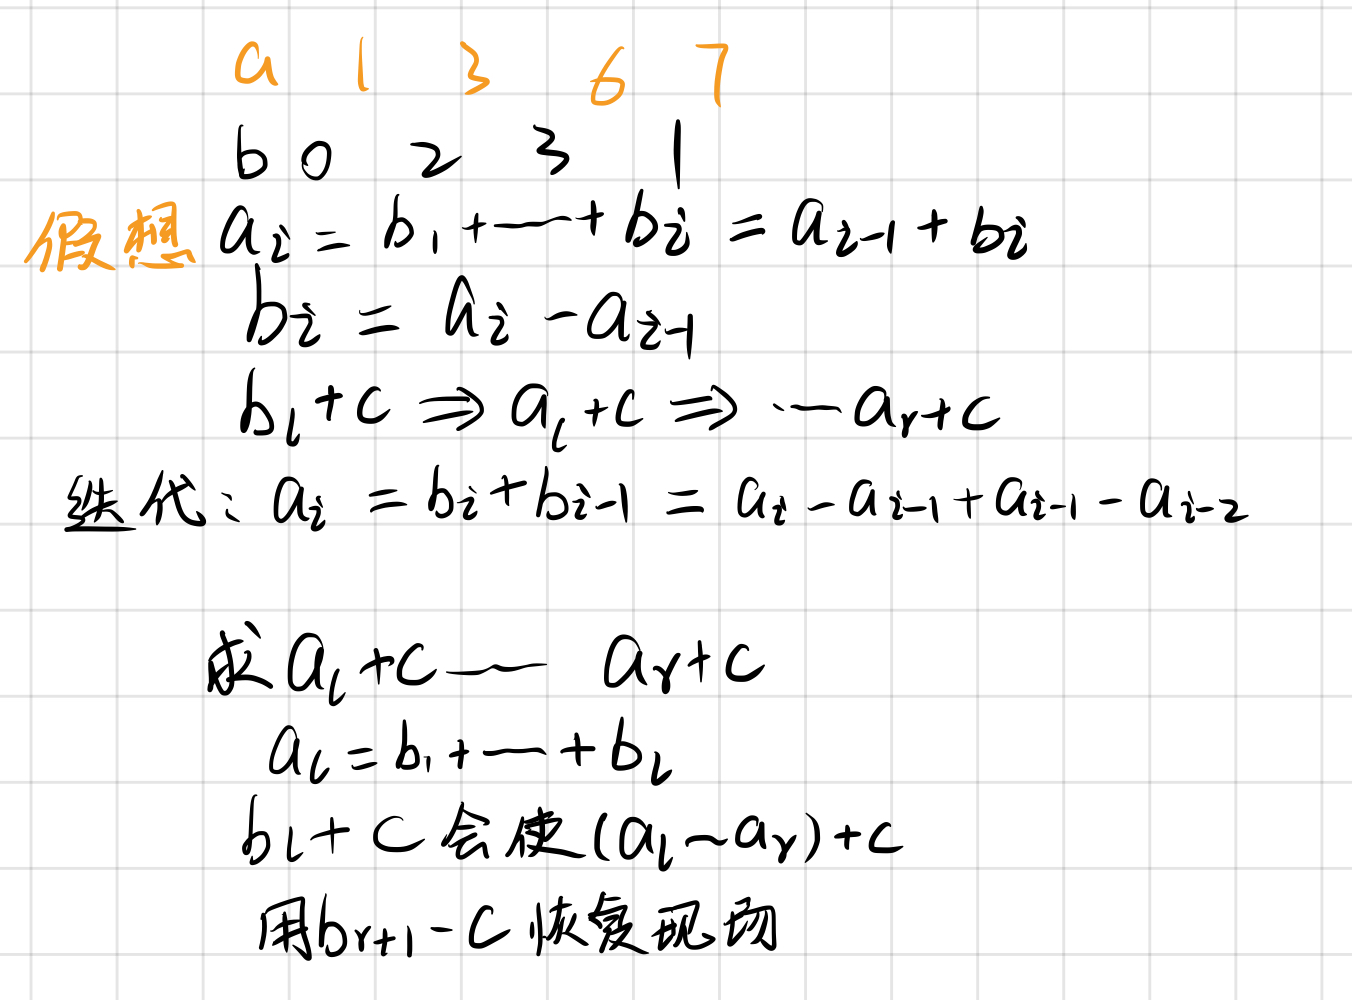 a 1 3 6 7
b 0 2 3 1
假想 aᵢ = b₁ + ⋯ + bᵢ = aᵢ₋₁ + bᵢ
bᵢ = aᵢ - aᵢ₋₁
bₗ + c ⇒ aₗ + c ⇒ ⋯ aᵣ + c
迭代: aᵢ = bᵢ + bᵢ₋₁ = aᵢ - aᵢ₋₁ + aᵢ₋₁ - aᵢ₋₂
求 aₗ + c — aᵣ + c
aₗ = b₁ + ⋯ + bₗ
bₗ + c 会使 (aₗ ~ aᵣ) + c
用 bᵣ₊₁ - c 恢复现场